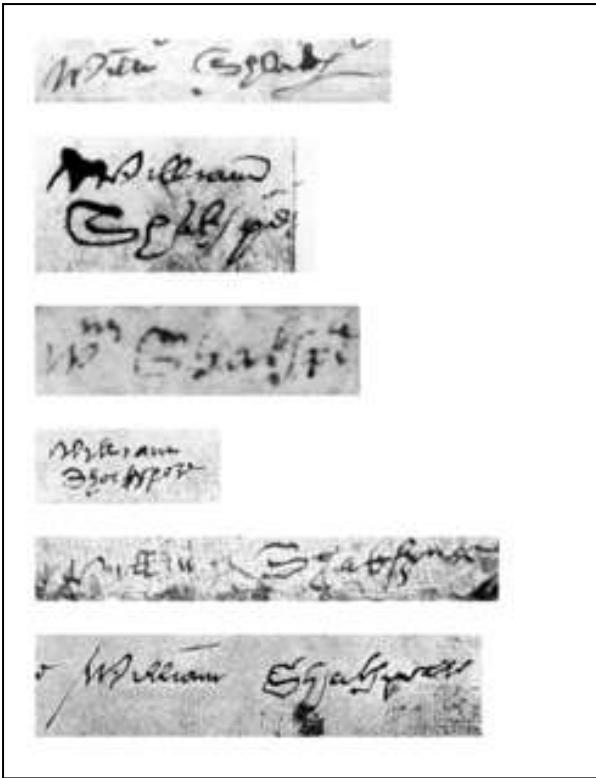 Willm Shakp
William
Shakspēr
Wm Shakspē
William
Shakspere
Willm Shakspere
William Shakspeare